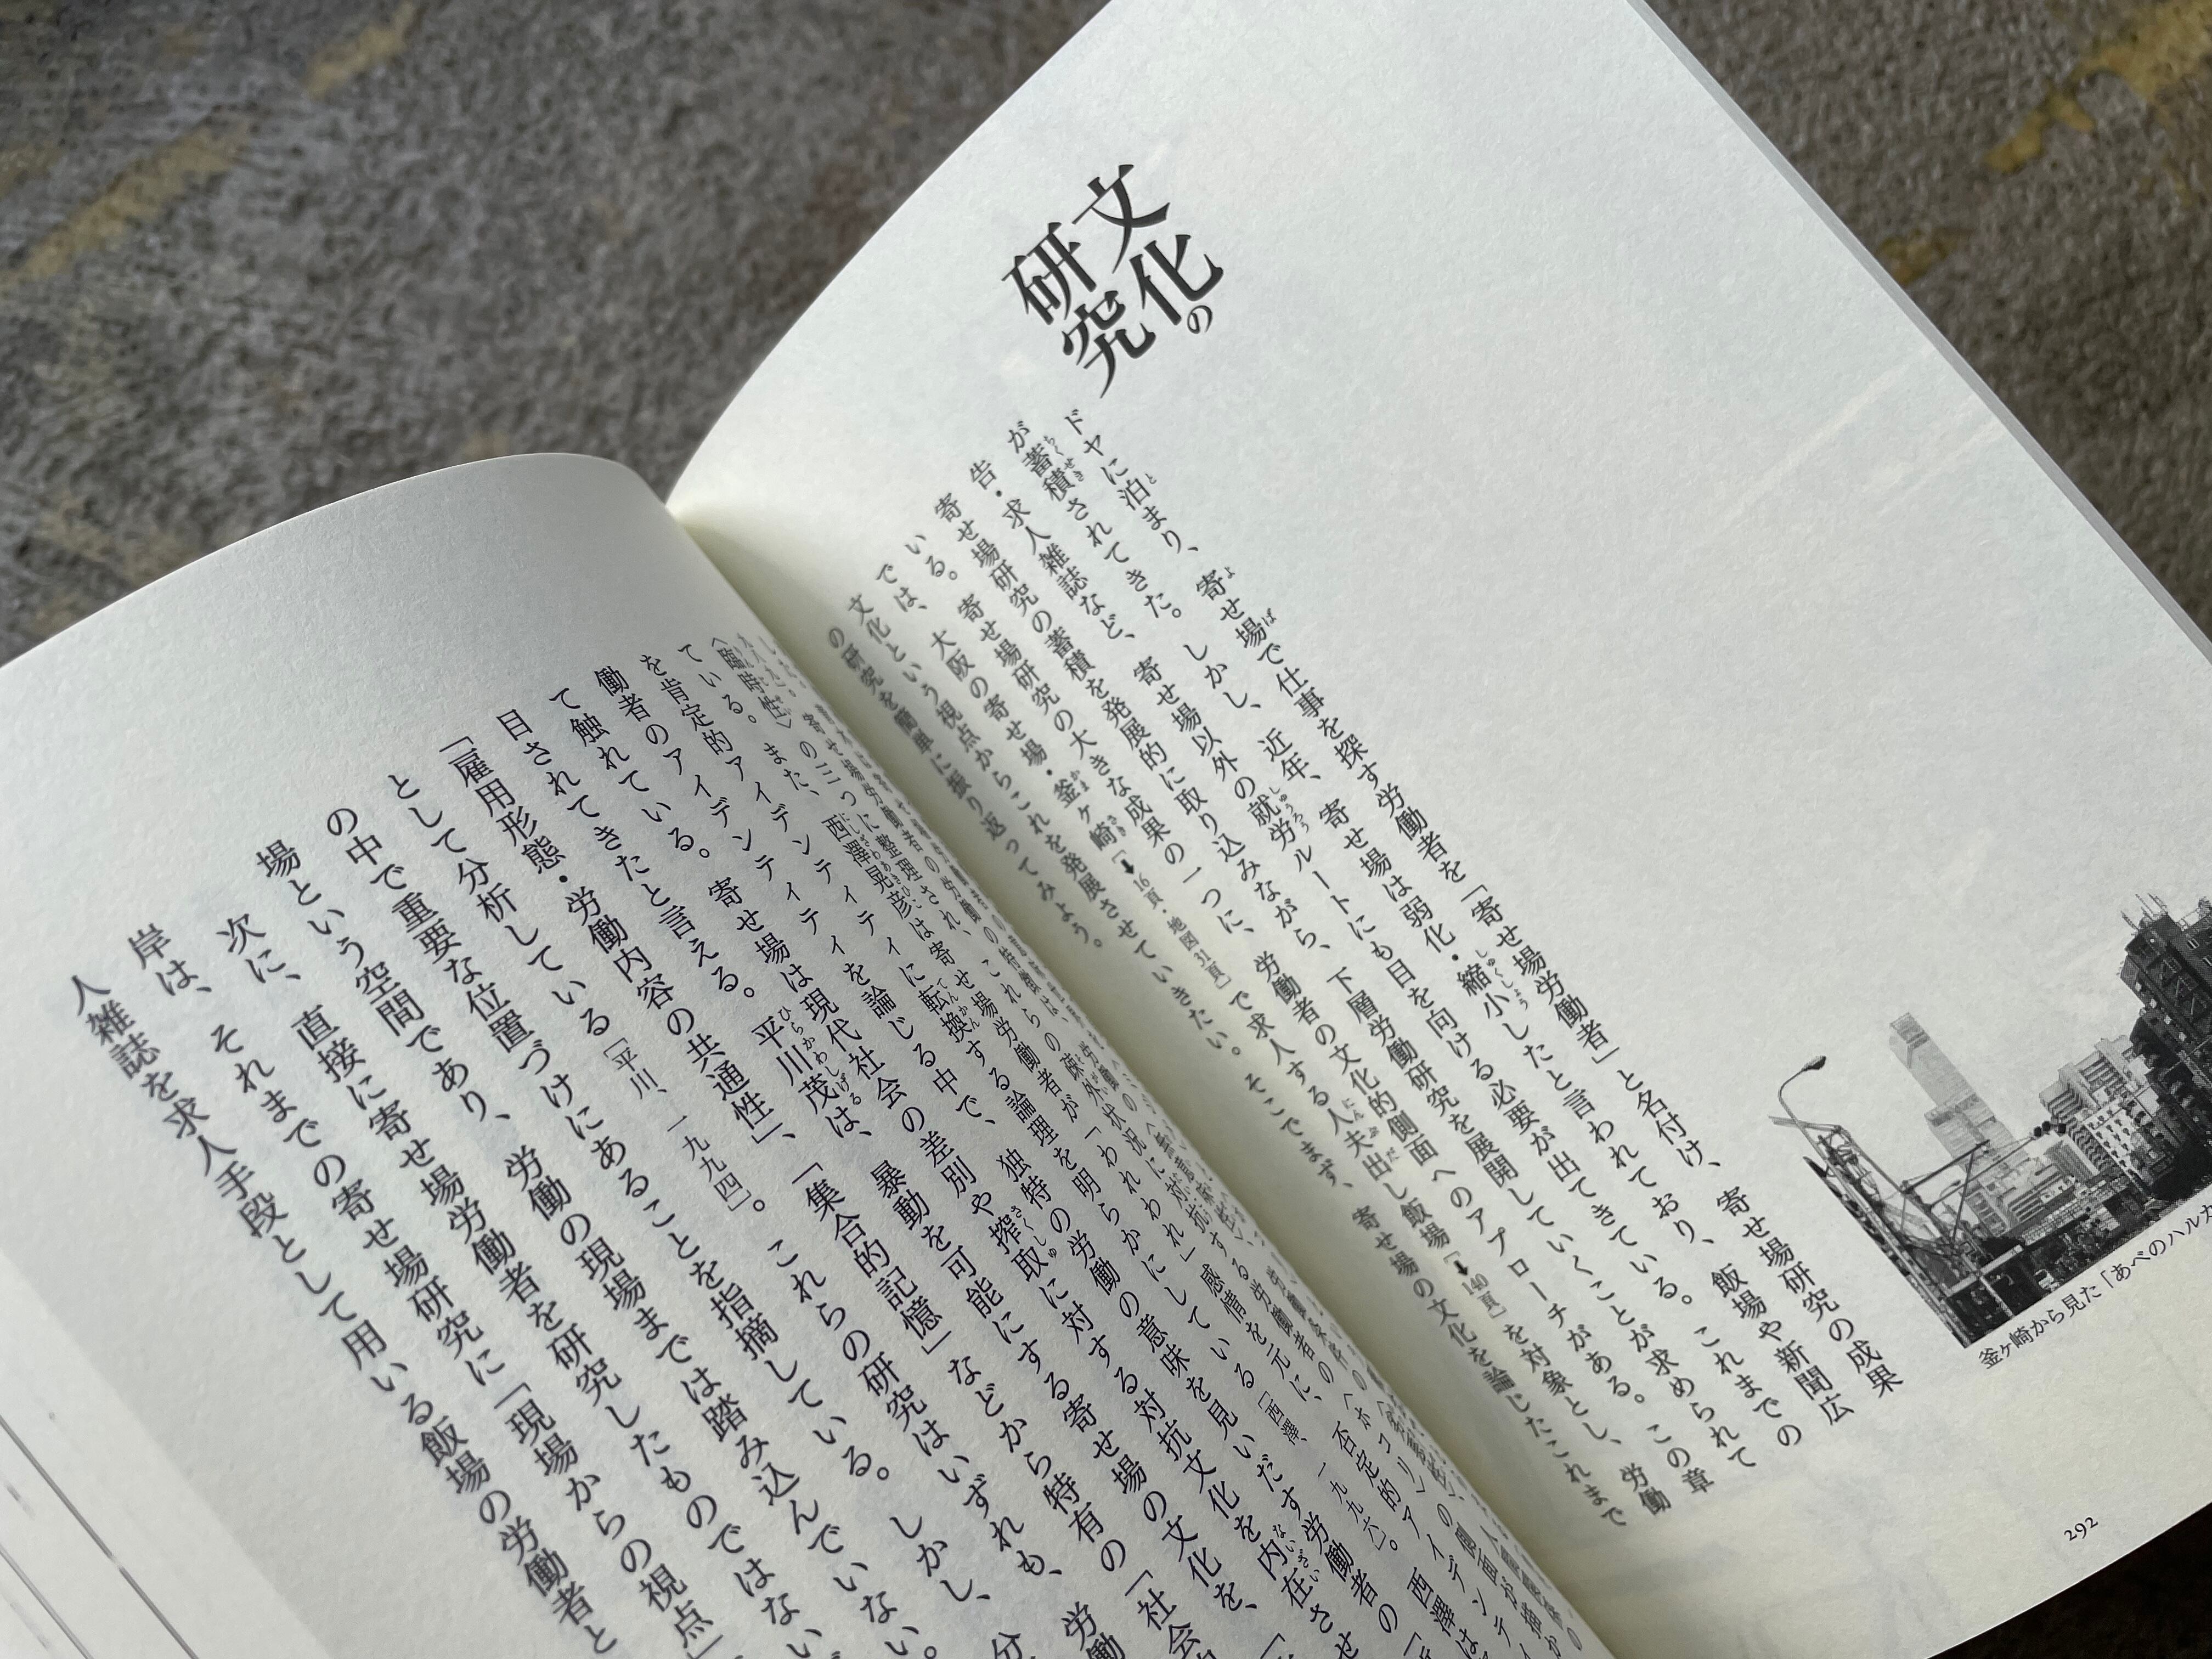 文化の
研究
ドヤに泊まり、寄せ場で仕事を探す労働者を「寄せ場労働者」と名付け、寄せ場研究の成果
が蓄積されてきた。しかし、近年、寄せ場は弱化・縮小したと言われており、飯場や新聞広
告・求人雑誌など、寄せ場以外の就労ルートにも目を向ける必要が出てきている。これまでの
寄せ場研究の蓄積を発展的に取り込みながら、下層労働研究を展開していくことが求められて
いる。寄せ場研究の大きな成果の一つに、労働者の文化的側面へのアプローチがある。この章
では、大阪の寄せ場・釜ヶ崎[➡16頁・地図31頁]で求人する人夫出し飯場[➡140頁]を対象とし、労働
文化という視点からこれを発展させていきたい。そこでまず、寄せ場の文化を論じたこれまで
の研究を簡単に振り返ってみよう。
釜ヶ崎から見た「あべのハルカ
292
〈臨時性〉の三つに整理され、これらの疎外状況に対抗する労働者の〈ホコリ〉の側面が描か
ている。また、西澤晃彦は寄せ場労働者が「われわれ」感情を元に、否定的アイデンティ
を肯定的アイデンティティに転換する論理を明らかにしている[西澤、一九九六]。西澤は
働者のアイデンティティを論じる中で、独特の労働の意味を見いだす労働者の「
て触れている。寄せ場は現代社会の差別や搾取に対する対抗文化を内在させ
目されてきたと言える。平川茂は、暴動を可能にする寄せ場の文化を、「
「雇用形態・労働内容の共通性」、「集合的記憶」などから特有の「社会
として分析している[平川、一九九四]。これらの研究はいずれも、労働
の中で重要な位置づけにあることを指摘している。しかし、分
場という空間であり、労働の現場までは踏み込んでいない。
次に、直接に寄せ場労働者を研究したものではない
岸は、それまでの寄せ場研究に「現場からの視点」
人雑誌を求人手段として用いる飯場の労働者と